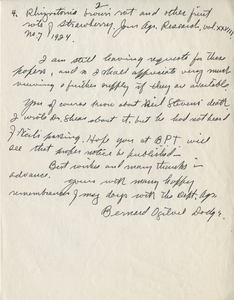 2
4. Rhizoctonia brown rot and other fruit
rots of Strawberry. Jour. Agr. Research, vol. XXVIII
No. 7 1924.
I am still having requests for these
papers, and so I shall appreciate very much
receiving a further supply if they are available.
You of course know about Neil Stevens' death.
I wrote Dr. Shear about it, but he had not heard
of Neil's passing. Hope you at B.P.I. will
see that proper notice is published.
Best wishes and many thanks in
advance.
Yours with many happy
remembrances of my days with the Dept. Agr.
Bernard Ogilvie Dodge.